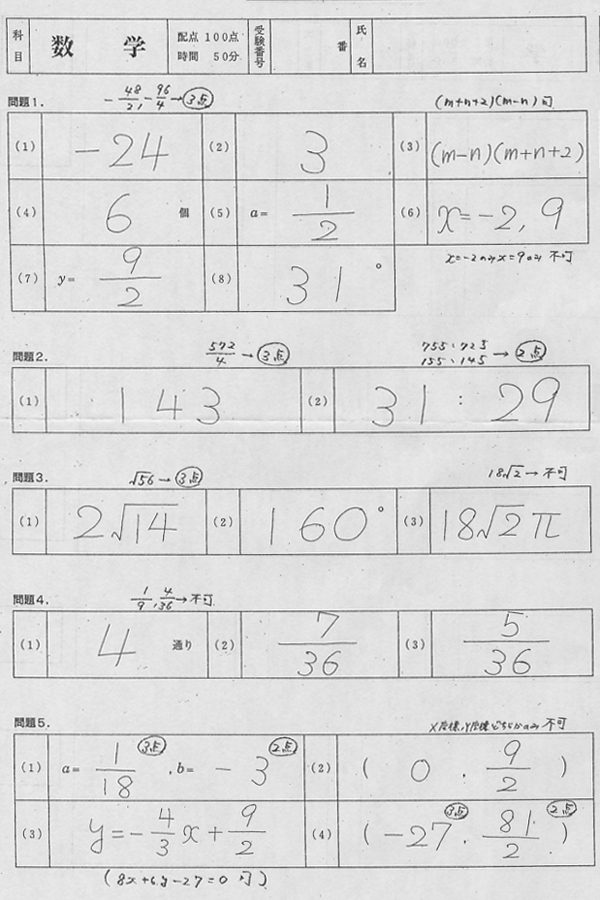 科目 数 学 配点 100点 時間 50分 受験番号 番 氏名
問題1. -48/21 -96/4 → 3点 (m+n+2)(m-n) 可
(1) -24 (2) 3 (3) (m-n)(m+n+2)
(4) 6 個 (5) a= 1/2 (6) x=-2, 9
x=-2のみ x=9のみ 不可
(7) y= 9/2 (8) 31°
問題2. 572/4 → 3点 755:725 155:145 → 2点
(1) 143 (2) 31 : 29
問題3. √56 → 3点 18√2 → 不可
(1) 2√14 (2) 160° (3) 18√2π
問題4. 1/9, 4/36 → 不可
(1) 4 通り (2) 7/36 (3) 5/36
問題5. X座標、Y座標どちらかのみ 不可
(1) a= 1/18 3点 , b= -3 2点 (2) ( 0 , 9/2 )
(3) y=-4/3x+9/2 (4) ( -27 3点 , 81/2 2点 )
(8x+6y-27=0 可)